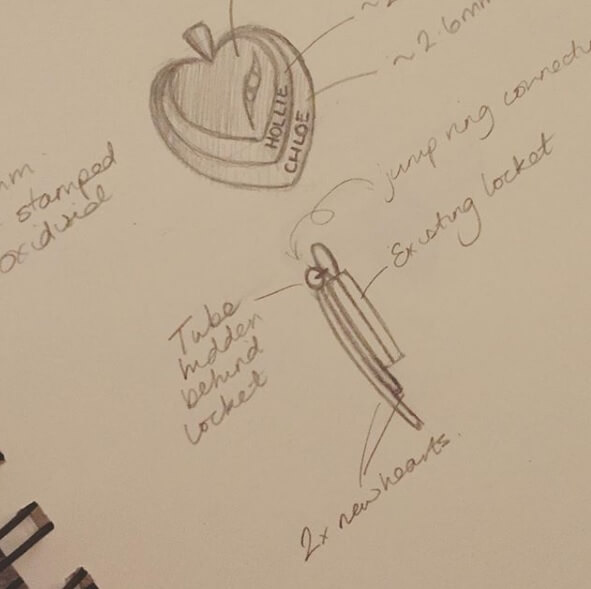 ~2
~2.6mm
HOLLIE
CHLOE
mm
stamped
oxidised
jump ring
Existing locket
Tube
hidden
behind
locket
2x new hearts.